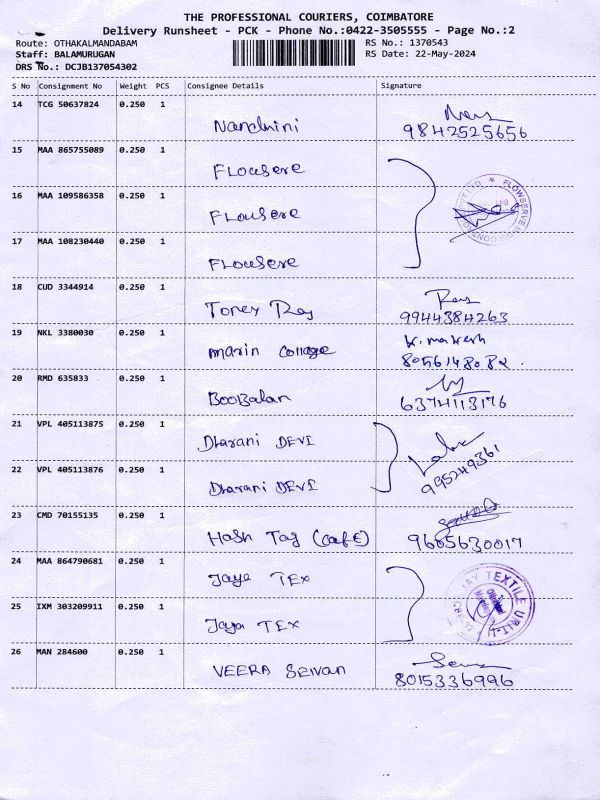 THE PROFESSIONAL COURIERS, COIMBATORE
Delivery Runsheet - PCK - Phone No.:0422-3505555 - Page No.:2
Route: OTHAKALMANDABAM RS No.: 1370543
Staff: BALAMURUGAN RS Date: 22-May-2024
DRS No.: DCJB137054302
S No Consignment No Weight PCS Consignee Details Signature
14 TCG 50637824 0.250 1
Nandhini 9842525656
15 MAA 865755089 0.250 1
Flousere
16 MAA 109586358 0.250 1
Flousere
FLOWSERVE INDIA CONTROLS PVT LTD
17 MAA 108230440 0.250 1
Flousere
18 CUD 3344914 0.250 1
Toney Raj 9944384263
19 NKL 3380030 0.250 1
marin College
20 RMD 635833 0.250 1
BooBalan 6374113176
21 VPL 405113875 0.250 1
Dharani DEVI
22 VPL 405113876 0.250 1
Dharani DEVI 995249361
23 CMD 70155135 0.250 1
Hash Tag (Cafe) 9605630017
24 MAA 864790681 0.250 1
Jaya TEX
JAY TEXTILE UNIT-II
25 IXM 303209911 0.250 1
Jaya TEX
26 MAN 284600 0.250 1
VEERA Selvan 8015336996